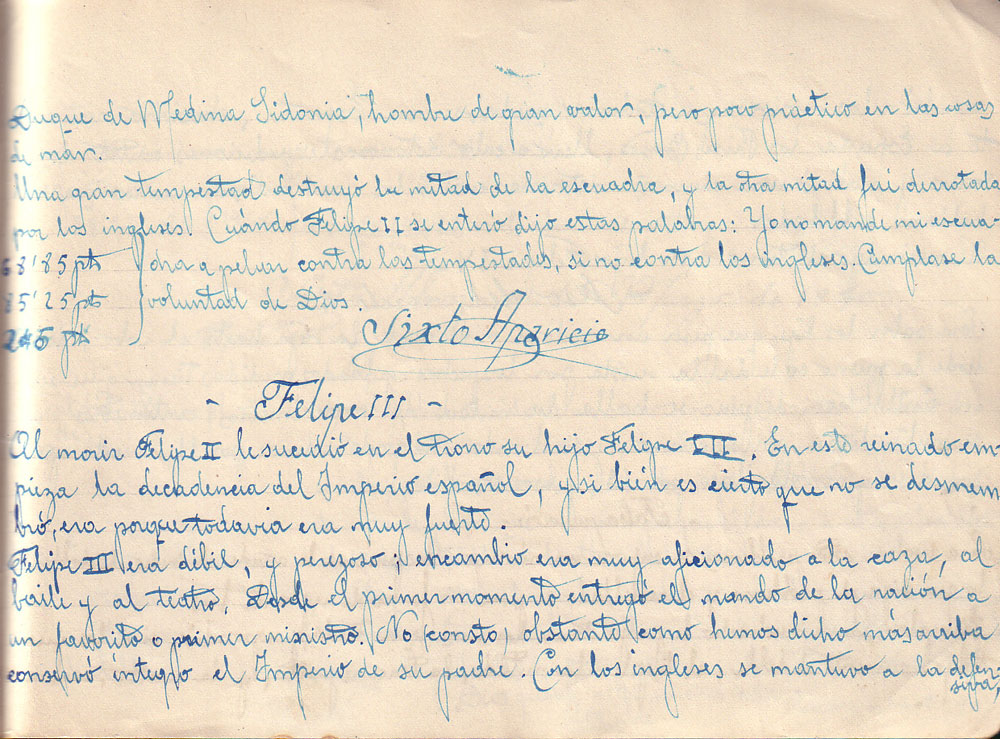 Duque de Medina Sidonia, hombre de gran valor, pero poco práctico en las cosas
de mar.
Una gran tempestad destruyó la mitad de la escuadra, y la otra mitad fué derrotada
por los ingleses. Cuándo Felipe II se enteró dijo estas palabras: Yo no mande mi escua-
68'85 pts dra a peluar contra las tempestades, si no contra los ingleses. Cúmplase la
85'25 pts voluntad de Dios.
pts Sixto Aparicio
- Felipe III -
Al morir Felipe II le sucedió en el trono su hijo Felipe III. En este reinado em-
pieza la decadencia del Imperio español, y si bién es cierto que no se desmem
bró, era porque todavia era muy fuerte.
Felipe III era débil, y perezoso; encambio era muy aficionado a la caza, al
baile y al teatro. Desde el primer momento entregó el mando de la nación a
un favorito o primer ministro. No (consto) obstante como hemos dicho más arriba
conservó íntegro el Imperio de su padre. Con los ingleses se mantuvo a la defen-
siva,